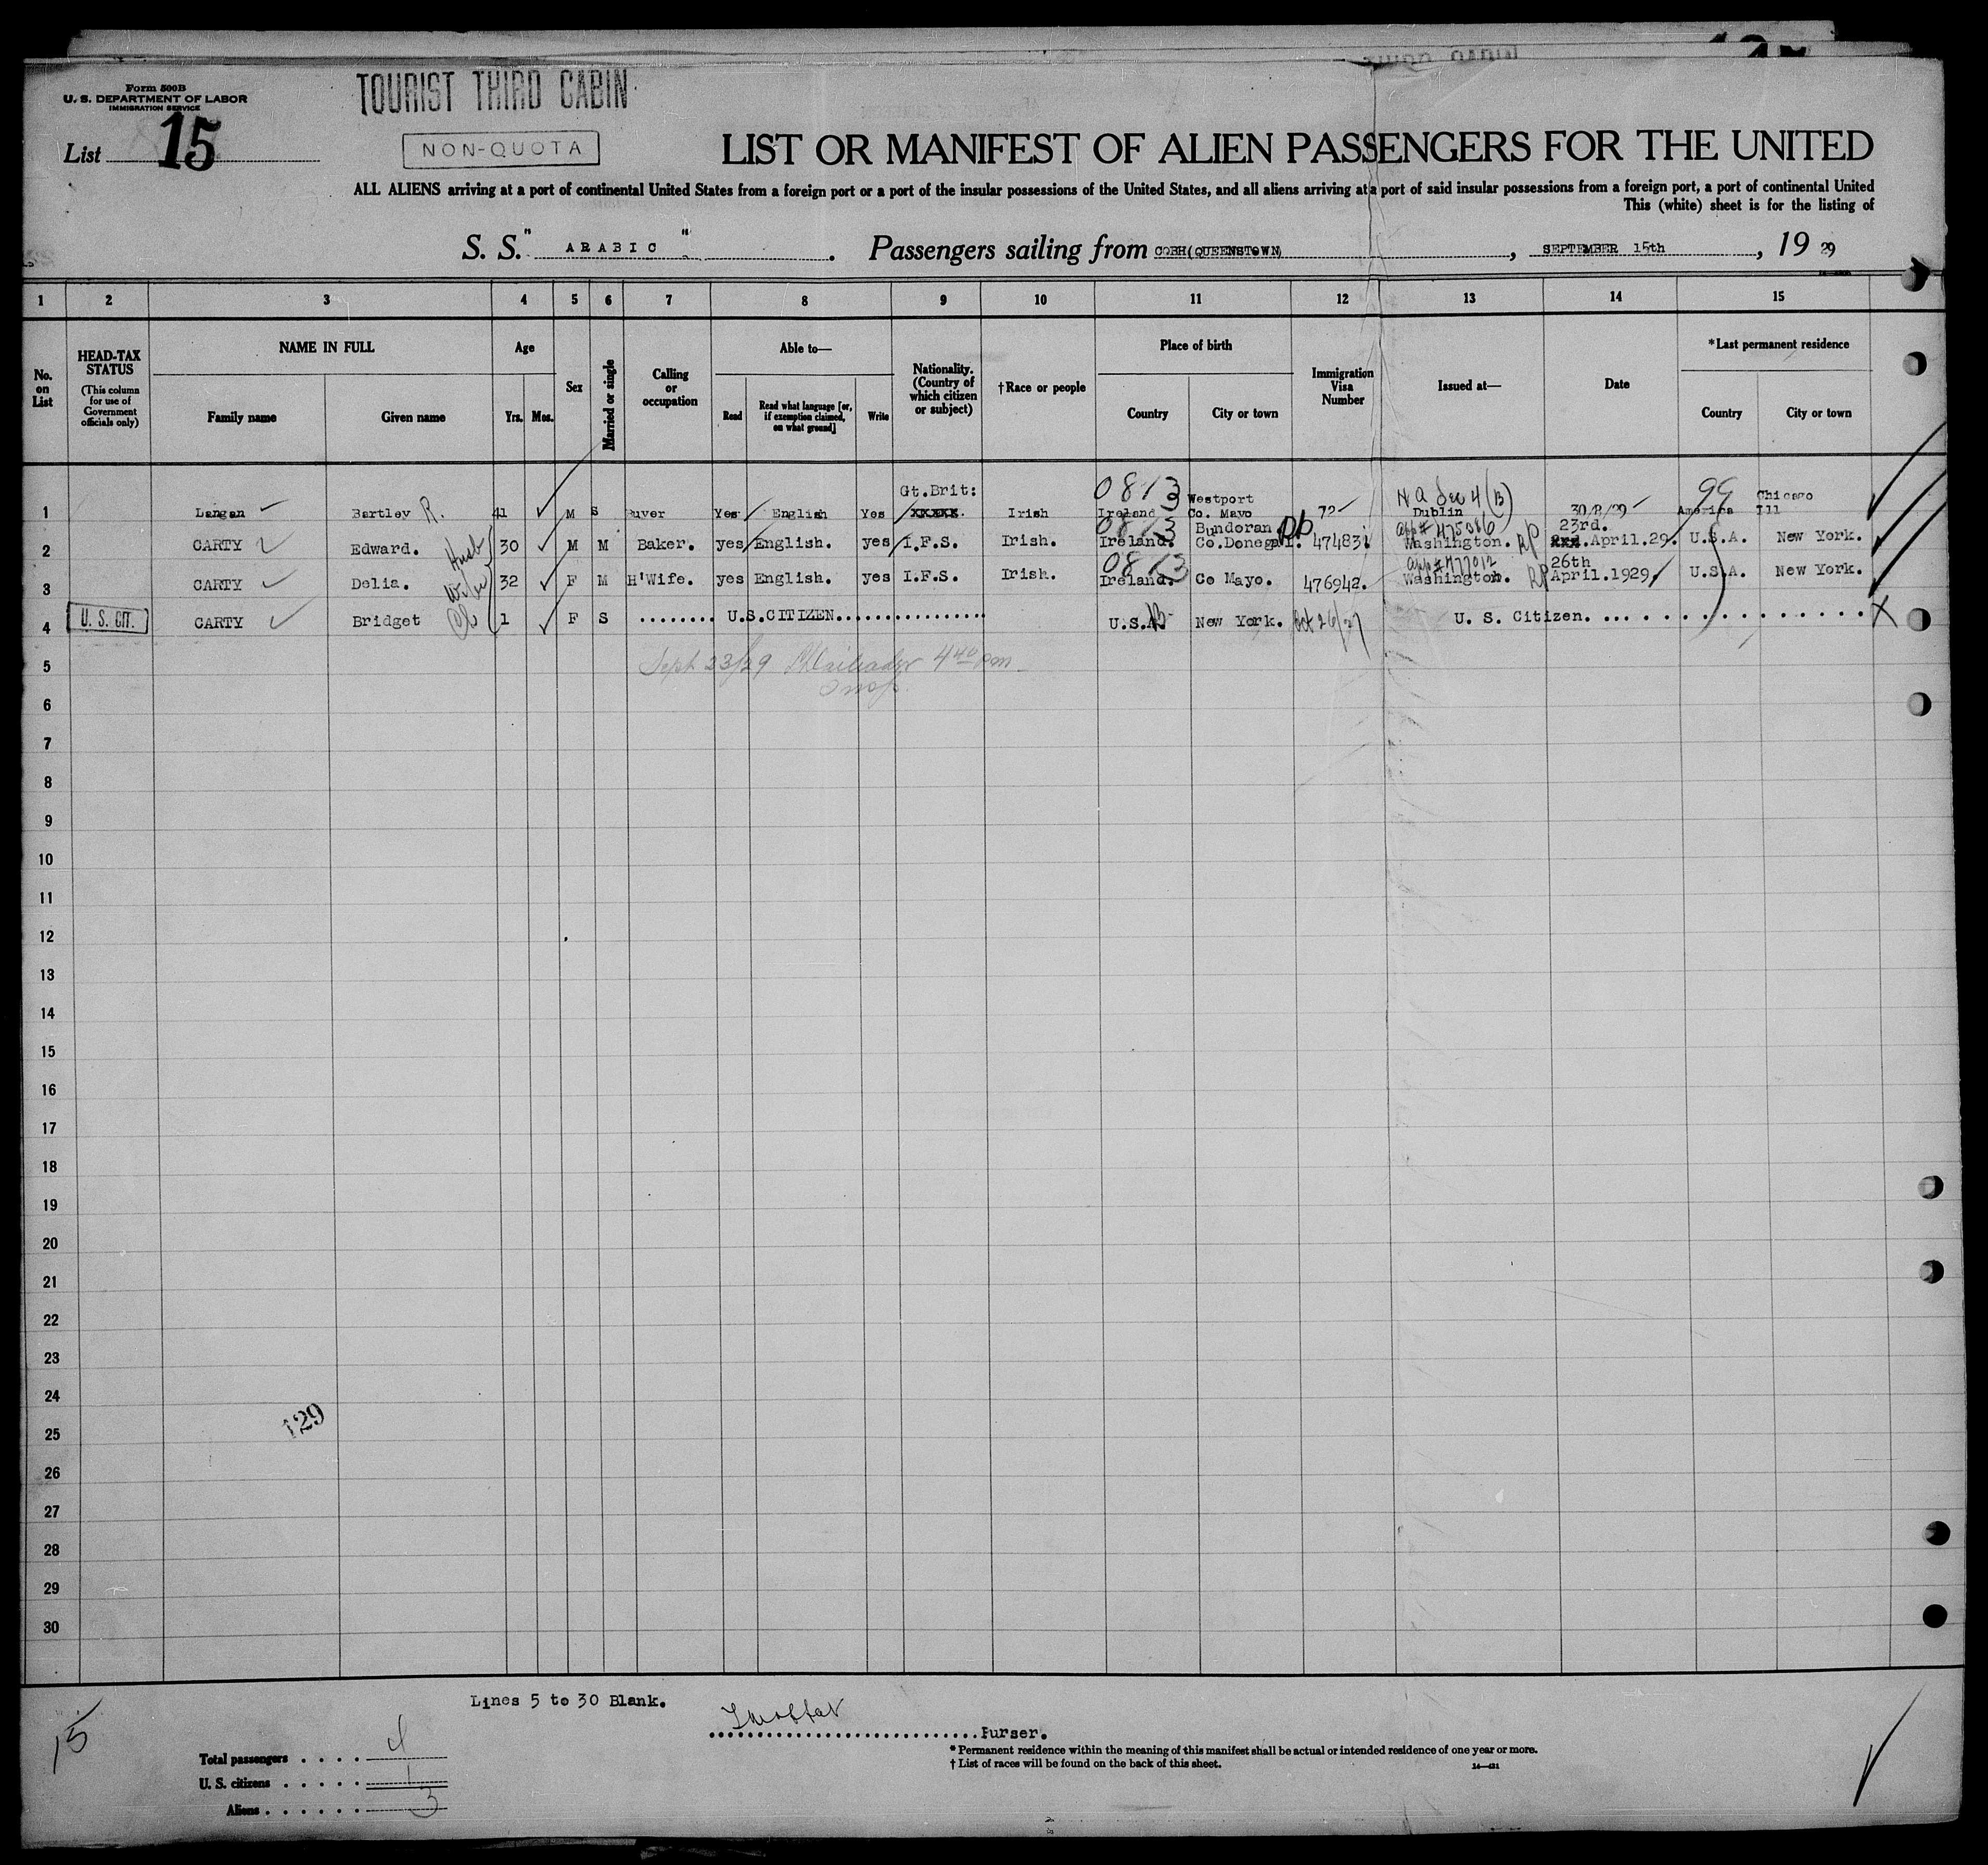 Form 500B
U. S. DEPARTMENT OF LABOR
IMMIGRATION SERVICE
TOURIST THIRD CABIN
List 15
NON-QUOTA
LIST OR MANIFEST OF ALIEN PASSENGERS FOR THE UNITED
ALL ALIENS arriving at a port of continental United States from a foreign port or a port of the insular possessions of the United States, and all aliens arriving at a port of said insular possessions from a foreign port, a port of continental United
This (white) sheet is for the listing of
S. S. "ARABIC". Passengers sailing from COBH(QUEENSTOWN), SEPTEMBER 15th, 19 29
1 2 3 4 5 6 7 8 9 10 11 12 13 14 15
No. on List
HEAD-TAX STATUS (This column for use of Government officials only)
NAME IN FULL
Family name Given name
Age
Yrs. Mos.
Sex
Married or single
Calling or occupation
Able to—
Read Read what language [or, if exemption claimed, on what ground] Write
Nationality. (Country of which citizen or subject)
†Race or people
Place of birth
Country City or town
Immigration Visa Number
Issued at—
Date
*Last permanent residence
Country City or town
Gt.Brit: 0813 Westport N A Sec 4 (B) 99 Chicago
1 Langan Bartley R. 41 M S Buyer Yes English Yes XXXXX. Irish Ireland Co. Mayo 72 Dublin 30/8/29 America Ill
0813 Bundoran RP 23rd.
2 CARTY Edward. Husb 30 M M Baker. yes English. yes I.F.S. Irish. Ireland. Co.Donegal. 474831 Washington. RP xxx.April.29. U.S.A. New York.
0813 26th
3 CARTY Delia. Wife 32 F M H'Wife. yes English. yes I.F.S. Irish. Ireland. Co Mayo. 476942. Washington. RP April.1929, U.S.A. New York.
4 U. S. CIT. CARTY Bridget Ch 1 F S ........ U.S.CITIZEN............... U.S.A. New York. Oct 26/27 U. S. Citizen. ............... X
5 Sept 23/29 4 40 pm
6
7
8
9
10
11
12
13
14
15
16
17
18
19
20
21
22
23
24
129
25
26
27
28
29
30
Lines 5 to 30 Blank.
............................Purser.
15
Total passengers . . . . 4
U. S. citizens . . . . . 1
Aliens . . . . . . 3
* Permanent residence within the meaning of this manifest shall be actual or intended residence of one year or more.
† List of races will be found on the back of this sheet.
14—431